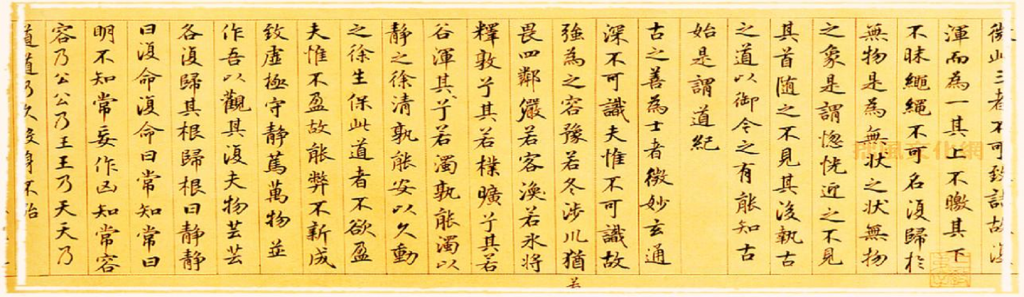 微此三者不可致詰故復
渾而為一其上不皦其下
不昧繩繩不可名復歸於
無物是為無狀之狀無物
之象是謂惚恍近之不見
其首随之不見其後執古
之道以御今之有能知古
始是謂道紀
古之善為士者微妙玄通
深不可識夫惟不可識故
強為之容豫若冬涉川猶
若
畏四鄰儼若客渙若氷將
釋敦兮其若樸曠兮其若
谷渾其兮若濁孰能濁以
静之徐清孰能安以久動
之徐生保此道者不欲盈
夫惟不盈故能弊不新成
致虛極守静篤萬物並
作吾以觀其復夫物芸芸
各復歸其根歸根曰静静
曰復命復命曰常知常曰
明不知常妄作凶知常容
容乃公公乃王王乃天天乃
道道乃久沒身不殆